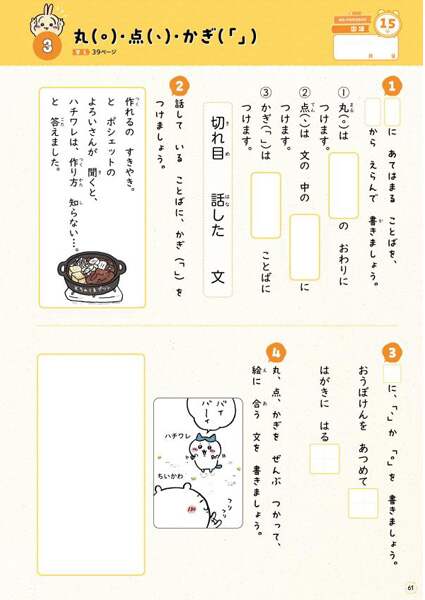 3
丸(。)・点(、)・かぎ(「」)
答え 39ページ
15
月 日
1
に あてはまる ことばを、
から えらんで 書きましょう。
① 丸(。)は の おわりに
つけます。
② 点(、)は 文の 中の に
つけます。
③ かぎ(「」)は ことばに
つけます。
切れ目 話した 文
2
話して いる ことばに、かぎ(「」)を
つけましょう。
作れるの すきやき。
と ポシェットの
よろいさんが 聞くと、
ハチワレは、作り方 知らない…。
と 答えました。
3
に、「、」か「。」を 書きましょう。
おうぼけんを あつめて
はがきに はる
4
丸、点、かぎを ぜんぶ つかって、
絵に 合う 文を 書きましょう。
バイ
バーイ
ハチワレ
ちいかわ
フリ
フリ
61